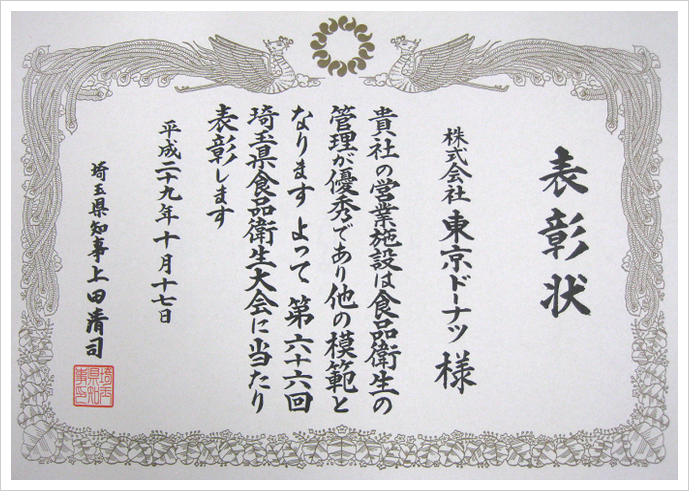 表彰状
株式会社 東京ドーナツ 様
貴社の営業施設は食品衛生の
管理が優秀であり他の模範と
なります よって 第六十六回
埼玉県食品衛生大会に当たり
表彰します
平成二十九年十月十七日
埼玉県知事 上田清司
埼玉県知事印